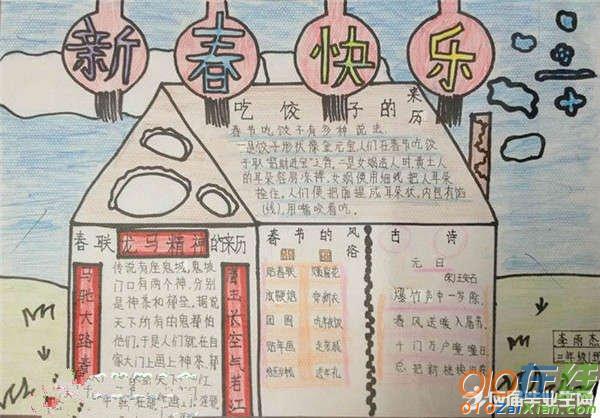 新春快乐
吃饺子的来历
春节吃饺子有多种说法，
一是饺子形状像金元宝人们在春节吃饺
子取"招财进宝"之音，二是女娲造人时黄土人
的耳朵容易冻掉，女娲使用细线把人耳朵
拴住，人们便把面捏成耳朵状，内包有馅
(线)，用嘴咬着吃。
春联龙马精神的来历
马驰大路
传说有座鬼域，鬼域
门口有两个神，分别
是神荼和郁垒，据说
天下所有的鬼都怕
他们，于是人们就在自
家大门上画上神荼、郁
长空气若江
春节的风俗
贴春联
贴窗花
放鞭炮
穿新衣
团圆
吃年夜饭
贴年画
走花城
给压岁钱
送年礼
古诗
元日
宋王安石
爆竹声中一岁除，
春风送暖入屠苏。
千门万户曈曈日，
总把新桃换旧符
李雨杰
应届毕业生网
910在线